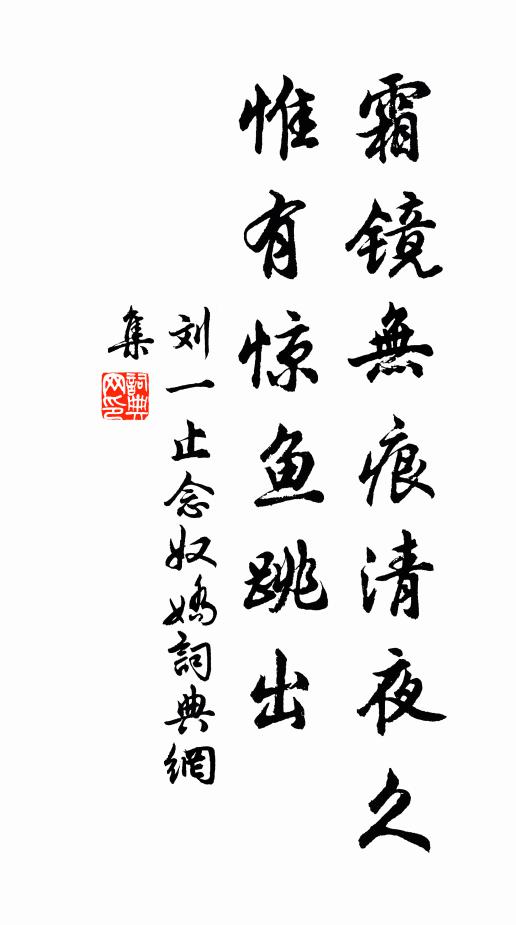 霜镜無痕清夜久
惟有惊鱼跳出
刘一止念奴娇詞典網
集
詞典网印